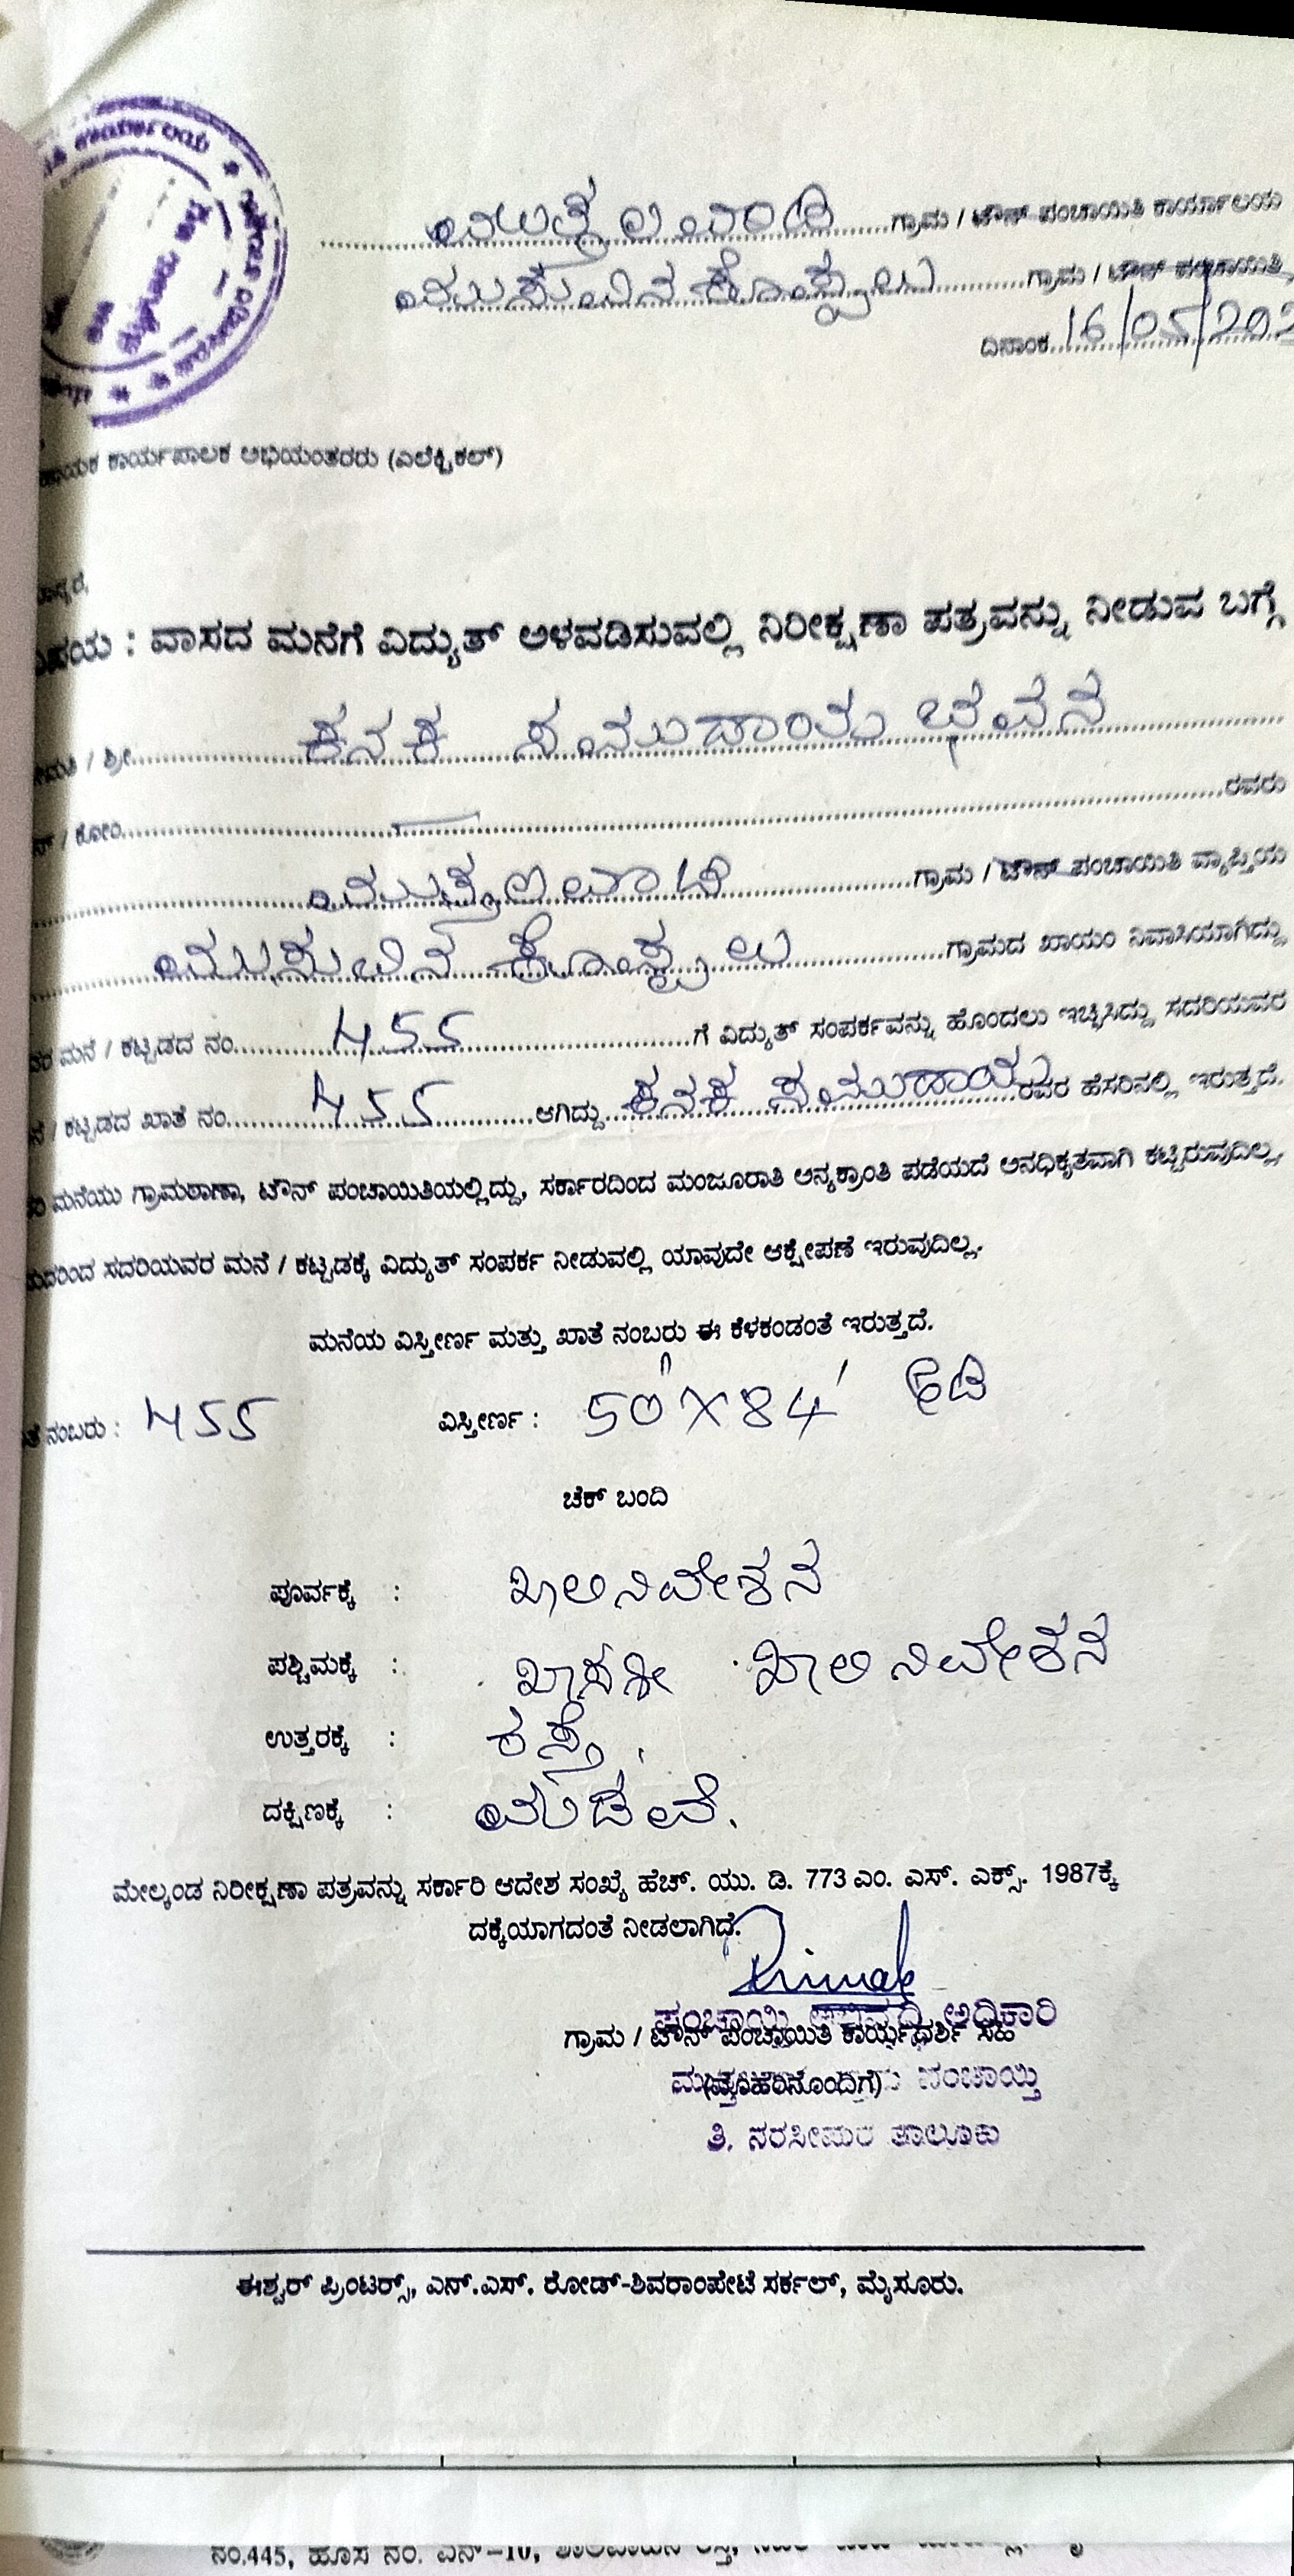 ಮುತ್ತಲವಾಡಿ ಗ್ರಾಮ / ಟೌನ್ ಪಂಚಾಯಿತಿ ಕಾರ್ಯಾಲಯ
ಮುಸುವಿನ ಕೊಪ್ಪಲು ಗ್ರಾಮ / ಟೌನ್ ಪಂಚಾಯಿತಿ,
ದಿನಾಂಕ 16/05/202
ಕಾರ್ಯಪಾಲಕ ಅಭಿಯಂತರರು (ಎಲೆಕ್ಟ್ರಿಕಲ್)
: ವಾಸದ ಮನೆಗೆ ವಿದ್ಯುತ್ ಅಳವಡಿಸುವಲ್ಲಿ ನಿರೀಕ್ಷಣಾ ಪತ್ರವನ್ನು ನೀಡುವ ಬಗ್ಗೆ
/ ಶ್ರೀ ಕನಕ ಸಮುದಾಯ ಭವನ
/ ಕೋಂ ರವರು
ಮುತ್ತಲವಾಡಿ ಗ್ರಾಮ / ಟೌನ್ ಪಂಚಾಯಿತಿ ವ್ಯಾಪ್ತಿಯ
ಮುಸುವಿನ ಕೊಪ್ಪಲು ಗ್ರಾಮದ ಖಾಯಂ ನಿವಾಸಿಯಾಗಿದ್ದು,
ಮನೆ / ಕಟ್ಟಡದ ನಂ. 455 ಗೆ ವಿದ್ಯುತ್ ಸಂಪರ್ಕವನ್ನು ಹೊಂದಲು ಇಚ್ಛಿಸಿದ್ದು ಸದರಿಯವರ
/ ಕಟ್ಟಡದ ಖಾತೆ ನಂ. 455 ಆಗಿದ್ದು ಕನಕ ಸಮುದಾಯ ರವರ ಹೆಸರಿನಲ್ಲಿ ಇರುತ್ತದೆ.
ಮನೆಯು ಗ್ರಾಮಠಾಣಾ, ಟೌನ್ ಪಂಚಾಯಿತಿಯಲ್ಲಿದ್ದು, ಸರ್ಕಾರದಿಂದ ಮಂಜೂರಾತಿ ಅನ್ಯಕ್ರಾಂತಿ ಪಡೆಯದೆ ಅನಧಿಕೃತವಾಗಿ ಕಟ್ಟಿರುವುದಿಲ್ಲ,
ಸದರಿಯವರ ಮನೆ / ಕಟ್ಟಡಕ್ಕೆ ವಿದ್ಯುತ್ ಸಂಪರ್ಕ ನೀಡುವಲ್ಲಿ ಯಾವುದೇ ಆಕ್ಷೇಪಣೆ ಇರುವುದಿಲ್ಲ.
ಮನೆಯ ವಿಸ್ತೀರ್ಣ ಮತ್ತು ಖಾತೆ ನಂಬರ್‍ರು ಈ ಕೆಳಕಂಡಂತೆ ಇರುತ್ತದೆ.
ನಂಬರು : 455 ವಿಸ್ತೀರ್ಣ : 50' X 84' ಅಡಿ
ಚೆಕ್ ಬಂದಿ
ಪೂರ್ವಕ್ಕೆ : ಖಾಲಿನಿವೇಶನ
ಪಶ್ಚಿಮಕ್ಕೆ : ಖಾಸಗೀ ಖಾಲಿ ನಿವೇಶನ
ಉತ್ತರಕ್ಕೆ : ರಸ್ತೆ.
ದಕ್ಷಿಣಕ್ಕೆ :
ಮೇಲ್ಕಂಡ ನಿರೀಕ್ಷಣಾ ಪತ್ರವನ್ನು ಸರ್ಕಾರಿ ಆದೇಶ ಸಂಖ್ಯೆ ಹೆಚ್. ಯು. ಡಿ. 773 ಎಂ. ಎಸ್. ಎಕ್ಸ್. 1987ಕ್ಕೆ
ದಕ್ಕೆಯಾಗದಂತೆ ನೀಡಲಾಗಿದೆ.
ಪಂಚಾಯ್ತಿ ಅಭಿವೃದ್ಧಿ ಅಧಿಕಾರಿ
ಗ್ರಾಮ / ಟೌನ್ ಪಂಚಾಯಿತಿ ಕಾರ್ಯದರ್ಶಿ ಸಹಿ
(ಮೊಹರಿನೊಂದಿಗೆ) ಪಂಚಾಯ್ತಿ
ತಿ. ನರಸೀಪುರ ತಾಲೂಕು
ಈಶ್ವರ್ ಪ್ರಿಂಟರ್ಸ್, ಎನ್.ಎಸ್. ರೋಡ್-ಶಿವರಾಂಪೇಟೆ ಸರ್ಕಲ್, ಮೈಸೂರು.
ನಂ.445, ಹೊಸ ನಂ. ಎನ್-10,